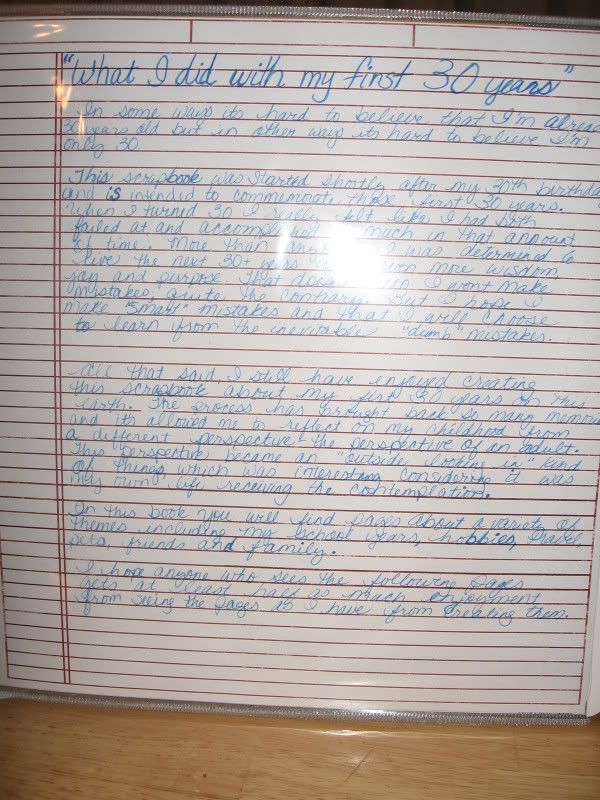 "What I did with my first 30 years"
In some ways its hard to believe that I'm
30 years old but in other ways its hard to believe I'm
only 30.
This scrapbook was started shortly after my 30th
and is intended to commemorate those first 30 years.
When I turned 30 I really felt like I had both
failed at and accomplished much in that amount
of time. More than I was determined to
live the next 30+ years even more wisdom
joy and purpose. That I wont make
mistakes, quite the contrary. But I hope I
make "smart" mistakes and that I will choose
to learn from the inevitable "dumb" mistakes.
All that said, I still have enjoyed creating
this scrapbook about my first 30 years on this
earth. The process has brought back so many
and it's allowed me to reflect on my childhood from
a different perspective - the perspective of an adult.
This perspective became an "outside looking in" kind
of thing which was interesting considering it was
my own life receiving the contemplation.
In this book you will find pages about a variety of
themes including my school years, hobbies, travel,
pets, friends and family.
I hope anyone who sees the following pages
gets at least half as much enjoyment
from seeing the pages as I have from creating them.